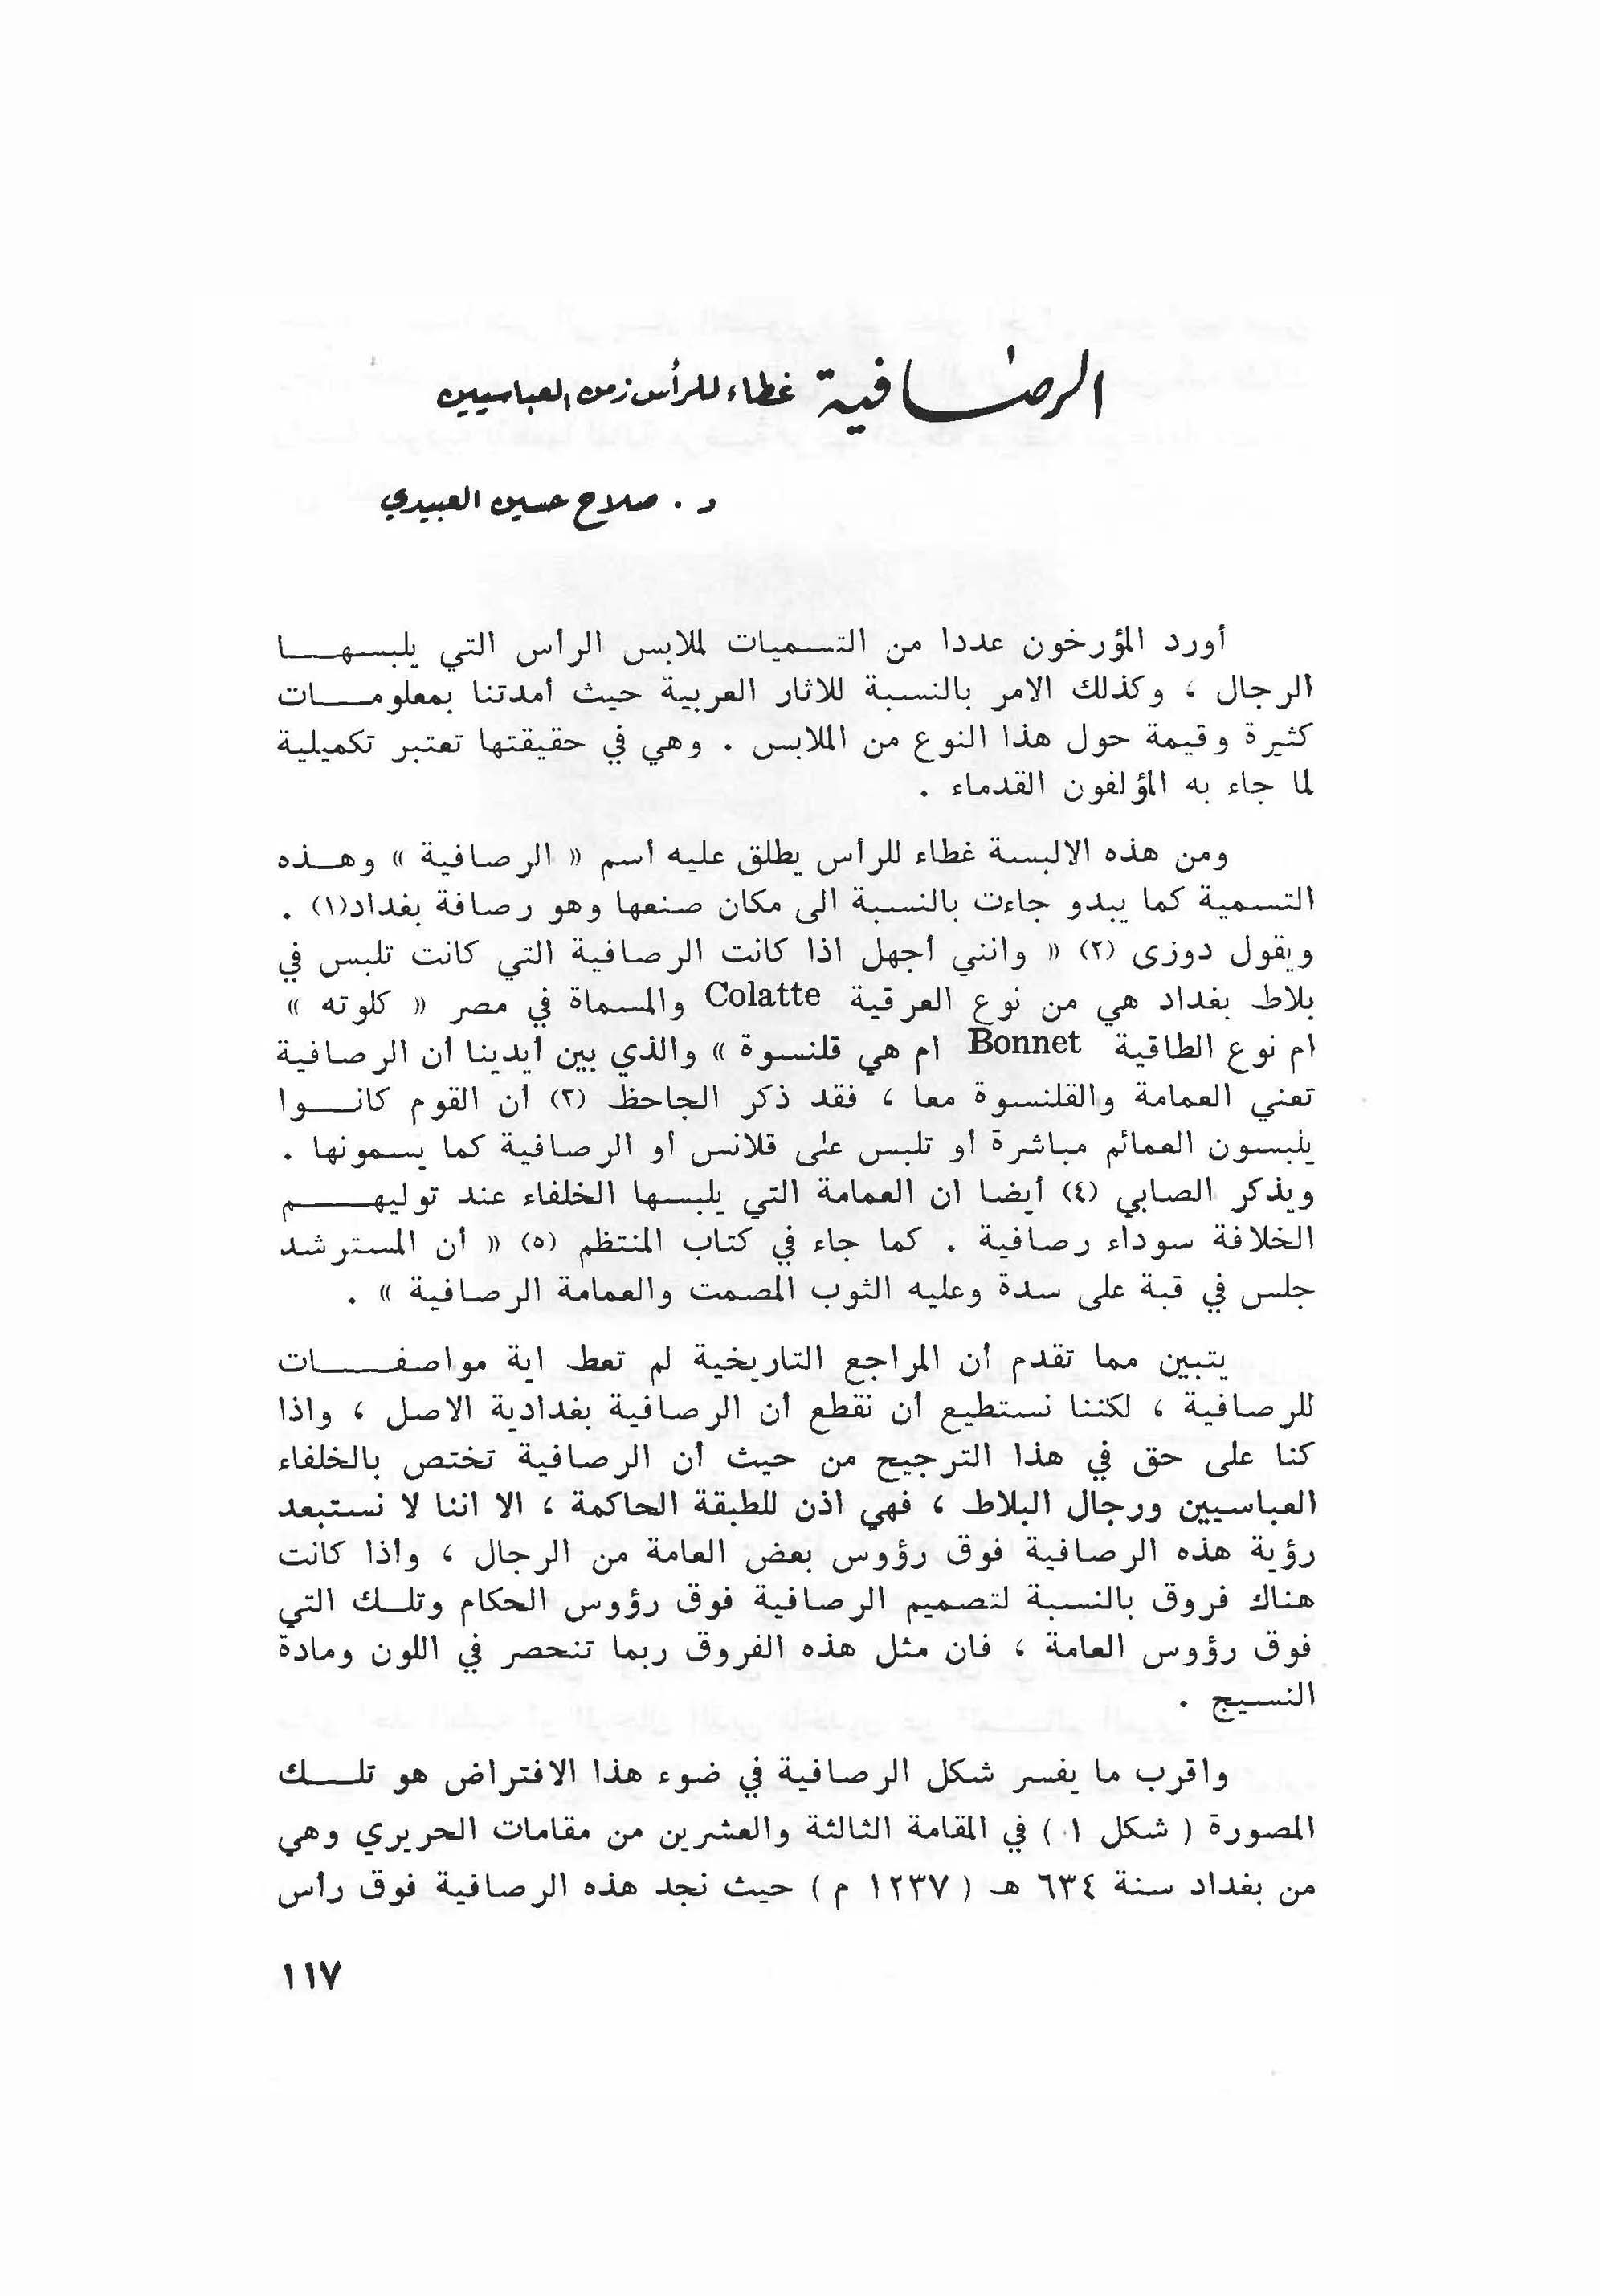 الرصافية غطاء للرأس زمن العباسيين
د . صلاح حسين العبيدي
أورد المؤرخون عددا من التسميات لملابس الرأس التي يلبسهـــا
الرجال ، وكذلك الامر بالنسبة للاثار العربية حيث أمدتنا بمعلومــات
كثيرة وقيمة حول هذا النوع من الملابس . وهي في حقيقتها تعتبر تكميلية
لما جاء به المؤلفون القدماء .
ومن هذه الالبسة غطاء للرأس يطلق عليه أسم « الرصافية » وهــذه
التسمية كما يبدو جاءت بالنسبة الى مكان صنعها وهو رصافة بغداد(١) .
ويقول دوزى (٢) « وانني أجهل اذا كانت الرصافية التي كانت تلبس في
بلاط بغداد هي من نوع العرقية Colatte والمسماة في مصر « كلوته »
ام نوع الطاقية Bonnet ام هي قلنسوة » والذي بين أيدينا ان الرصافية
تعني العمامة والقلنسوة معا ، فقد ذكر الجاحظ (٣) ان القوم كانــوا
يلبسون العمائم مباشرة أو تلبس على قلانس أو الرصافية كما يسمونها .
ويذكر الصابي (٤) أيضا ان العمامة التي يلبسها الخلفاء عند توليهــم
الخلافة سوداء رصافية . كما جاء في كتاب المنتظم (٥) « أن المسترشد
جلس في قبة على سدة وعليه الثوب المصمت والعمامة الرصافية » .
يتبين مما تقدم أن المراجع التاريخية لم تعط اية مواصفــات
للرصافية ، لكننا نستطيع أن نقطع أن الرصافية بغدادية الاصل ، واذا
كنا على حق في هذا الترجيح من حيث أن الرصافية تختص بالخلفاء
العباسيين ورجال البلاط ، فهي اذن للطبقة الحاكمة ، الا اننا لا نستبعد
رؤية هذه الرصافية فوق رؤوس بعض العامة من الرجال ، وأذا كانت
هناك فروق بالنسبة لتصميم الرصافية فوق رؤوس الحكام وتلــك التي
فوق رؤوس العامة ، فان مثل هذه الفروق ربما تنحصر في اللون ومادة
النسيج .
واقرب ما يفسر شكل الرصافية في ضوء هذا الافتراض هو تلــك
المصورة ( شكل ١ ) في المقامة الثالثة والعشرين من مقامات الحريري وهي
من بغداد سنة ٦٣٤ هـ ( ١٢٣٧ م ) حيث نجد هذه الرصافية فوق رأس
١١٧